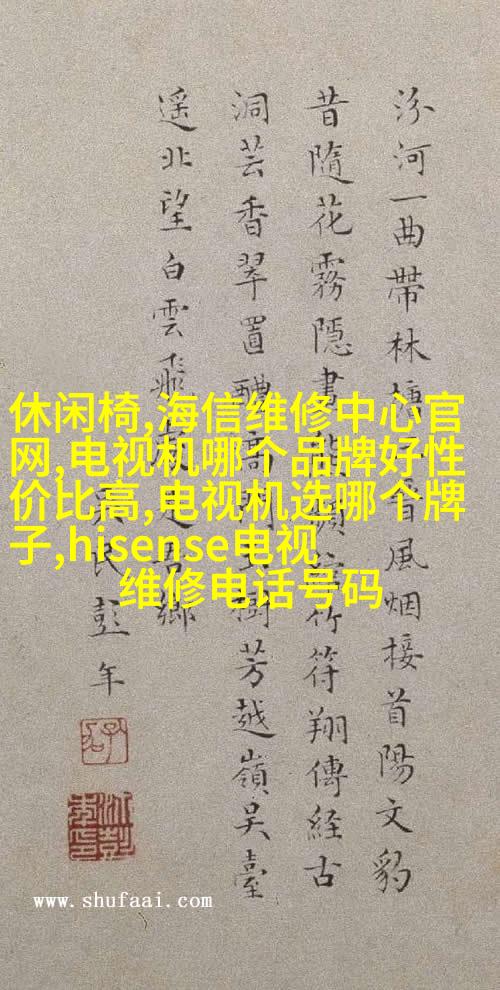 汾河一曲帶林風烟接首陽文豹
昔隨花霧隱書竹符翔傳経古
洞芸香翠置樹芳越嶺吳臺
遥北望白雲飛鄉
民彭年
休闲椅,海信维修中心官
网,电视机哪个品牌好性
价比高,电视机选哪个牌
子,hisense电视
维修电话号码
www.shufaai.com